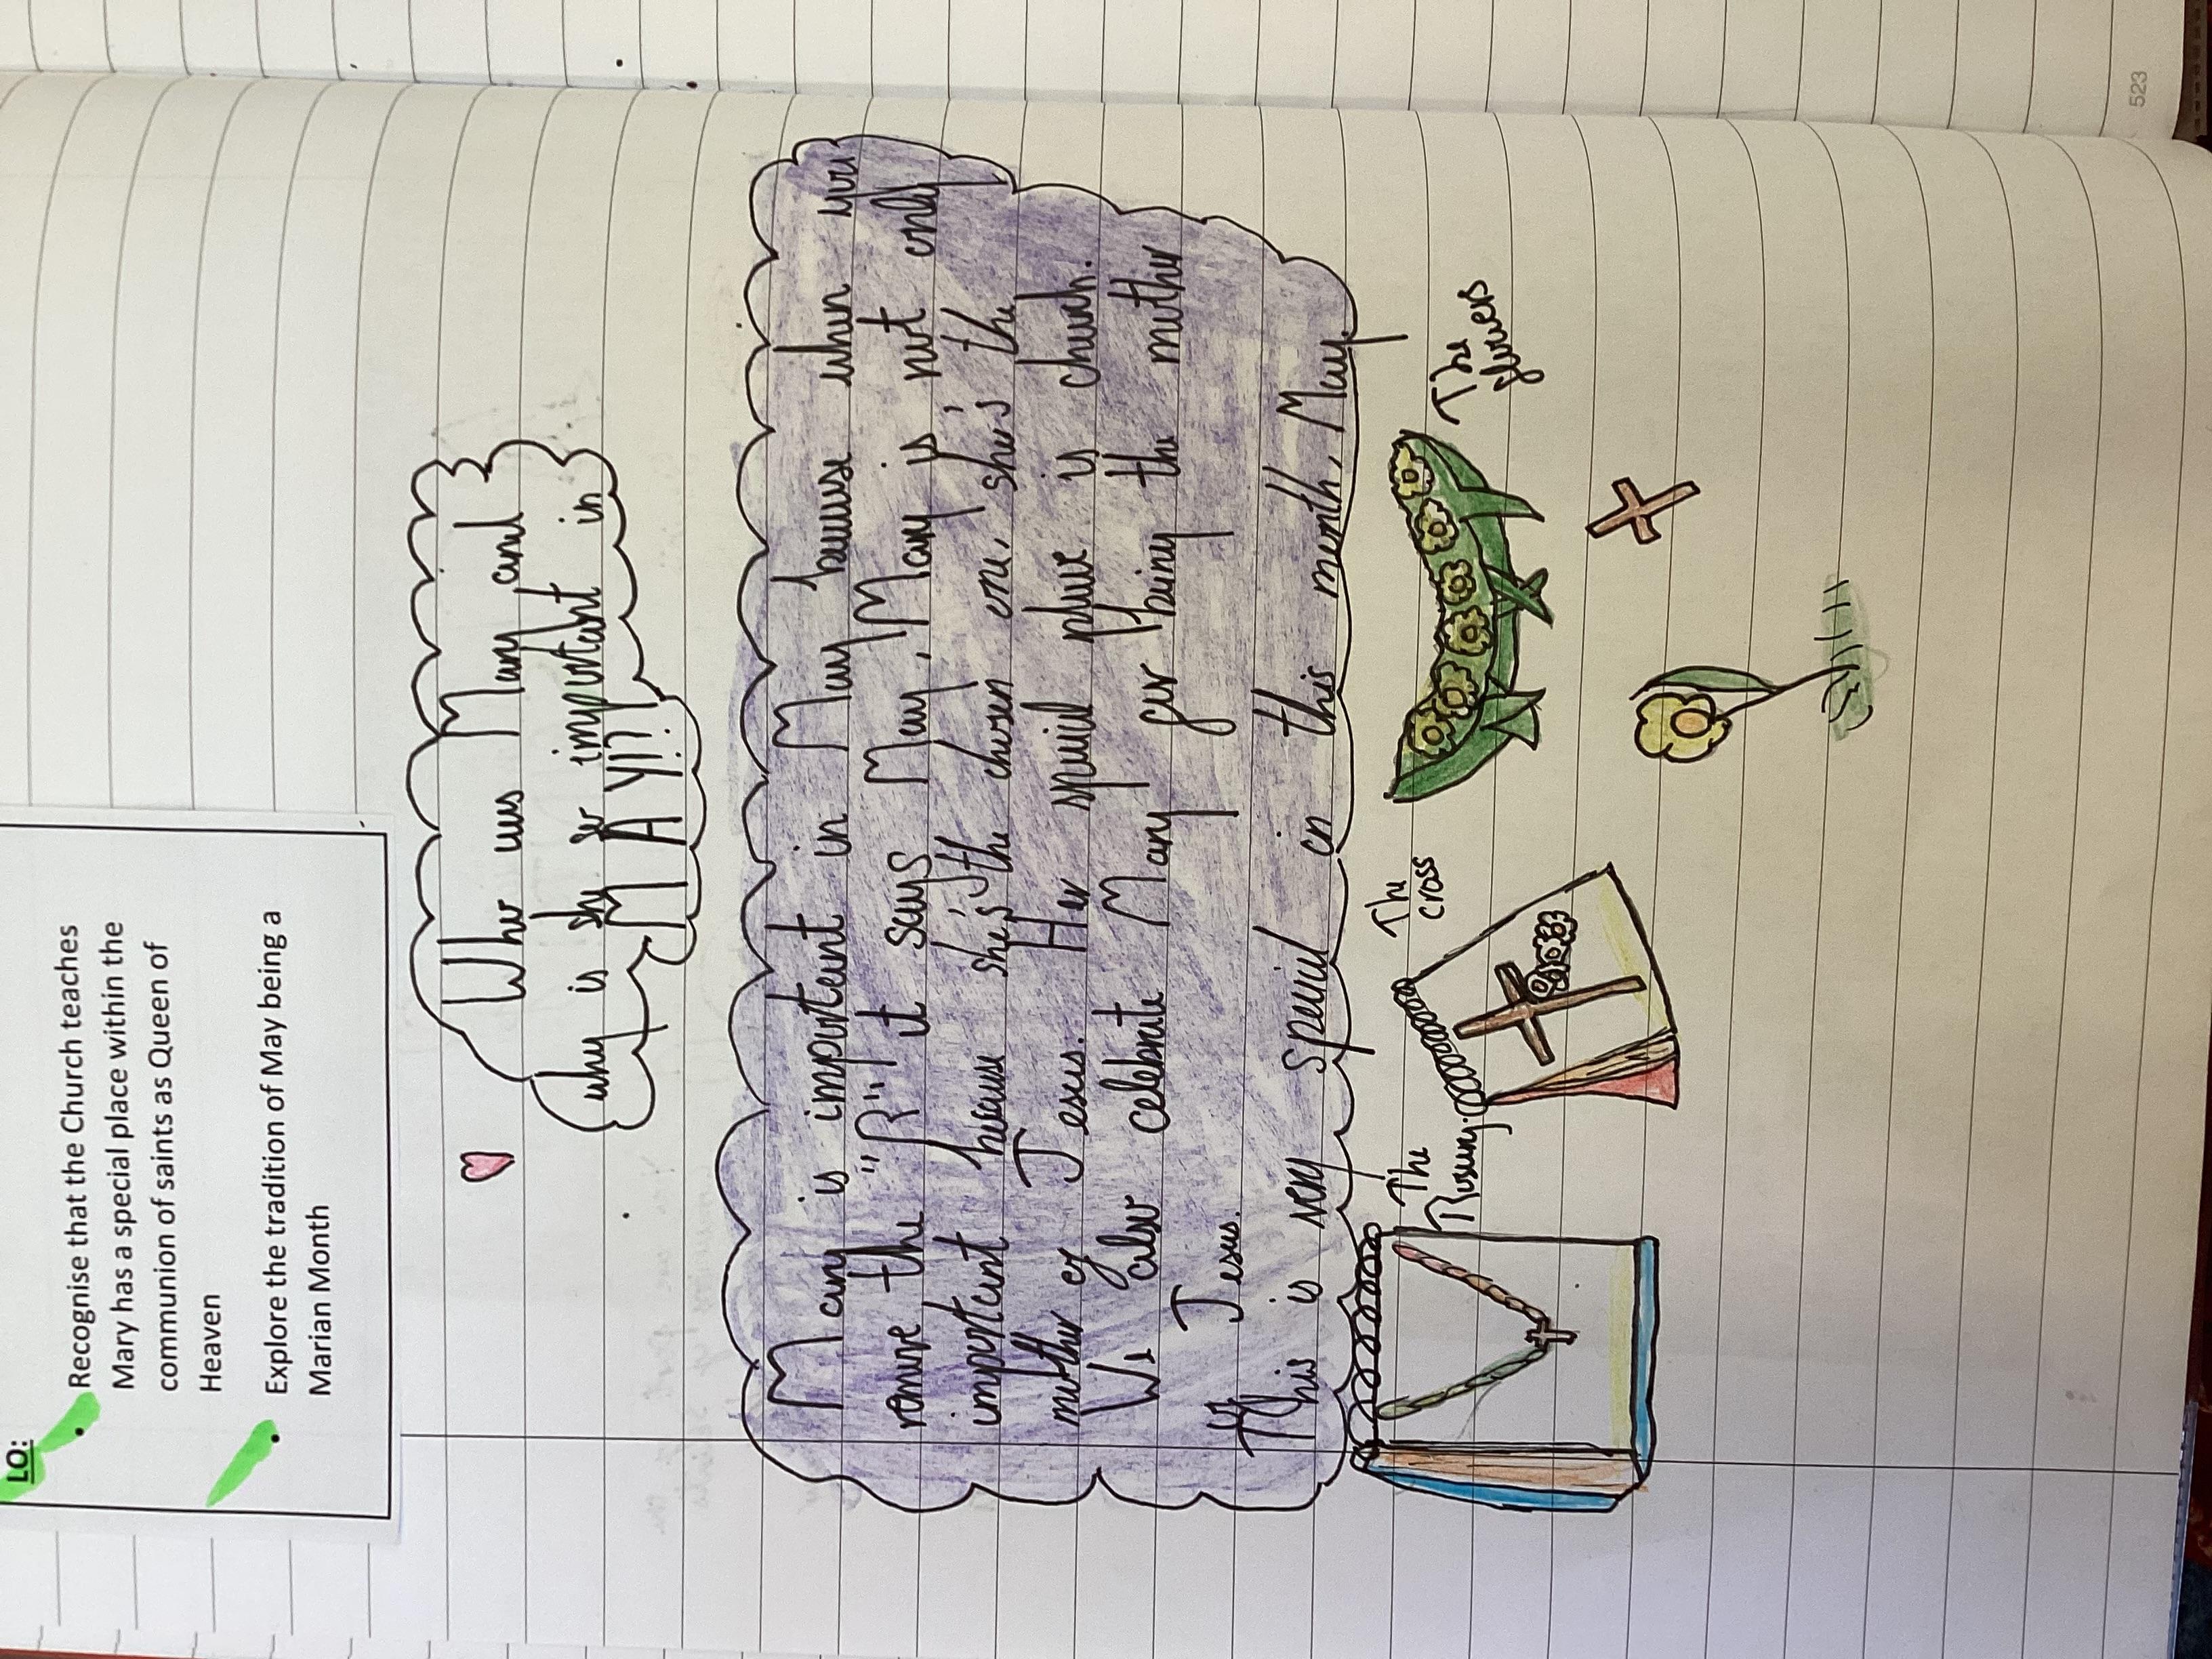 LO:
• Recognise that the Church teaches
Mary has a special place within the
communion of saints as Queen of
Heaven
• Explore the tradition of May being a
Marian Month
Who was Mary and
why is she so important in
MAY!?
Mary is important in May because when you
remove the "R" it says May, Mary is not only
important because she's the chosen one, she's the
mother of Jesus. Her special place is church.
We also celebrate Mary for being the mother
of Jesus.
This is very special in this month, May.
The Rosary.
The cross
The flowers
523